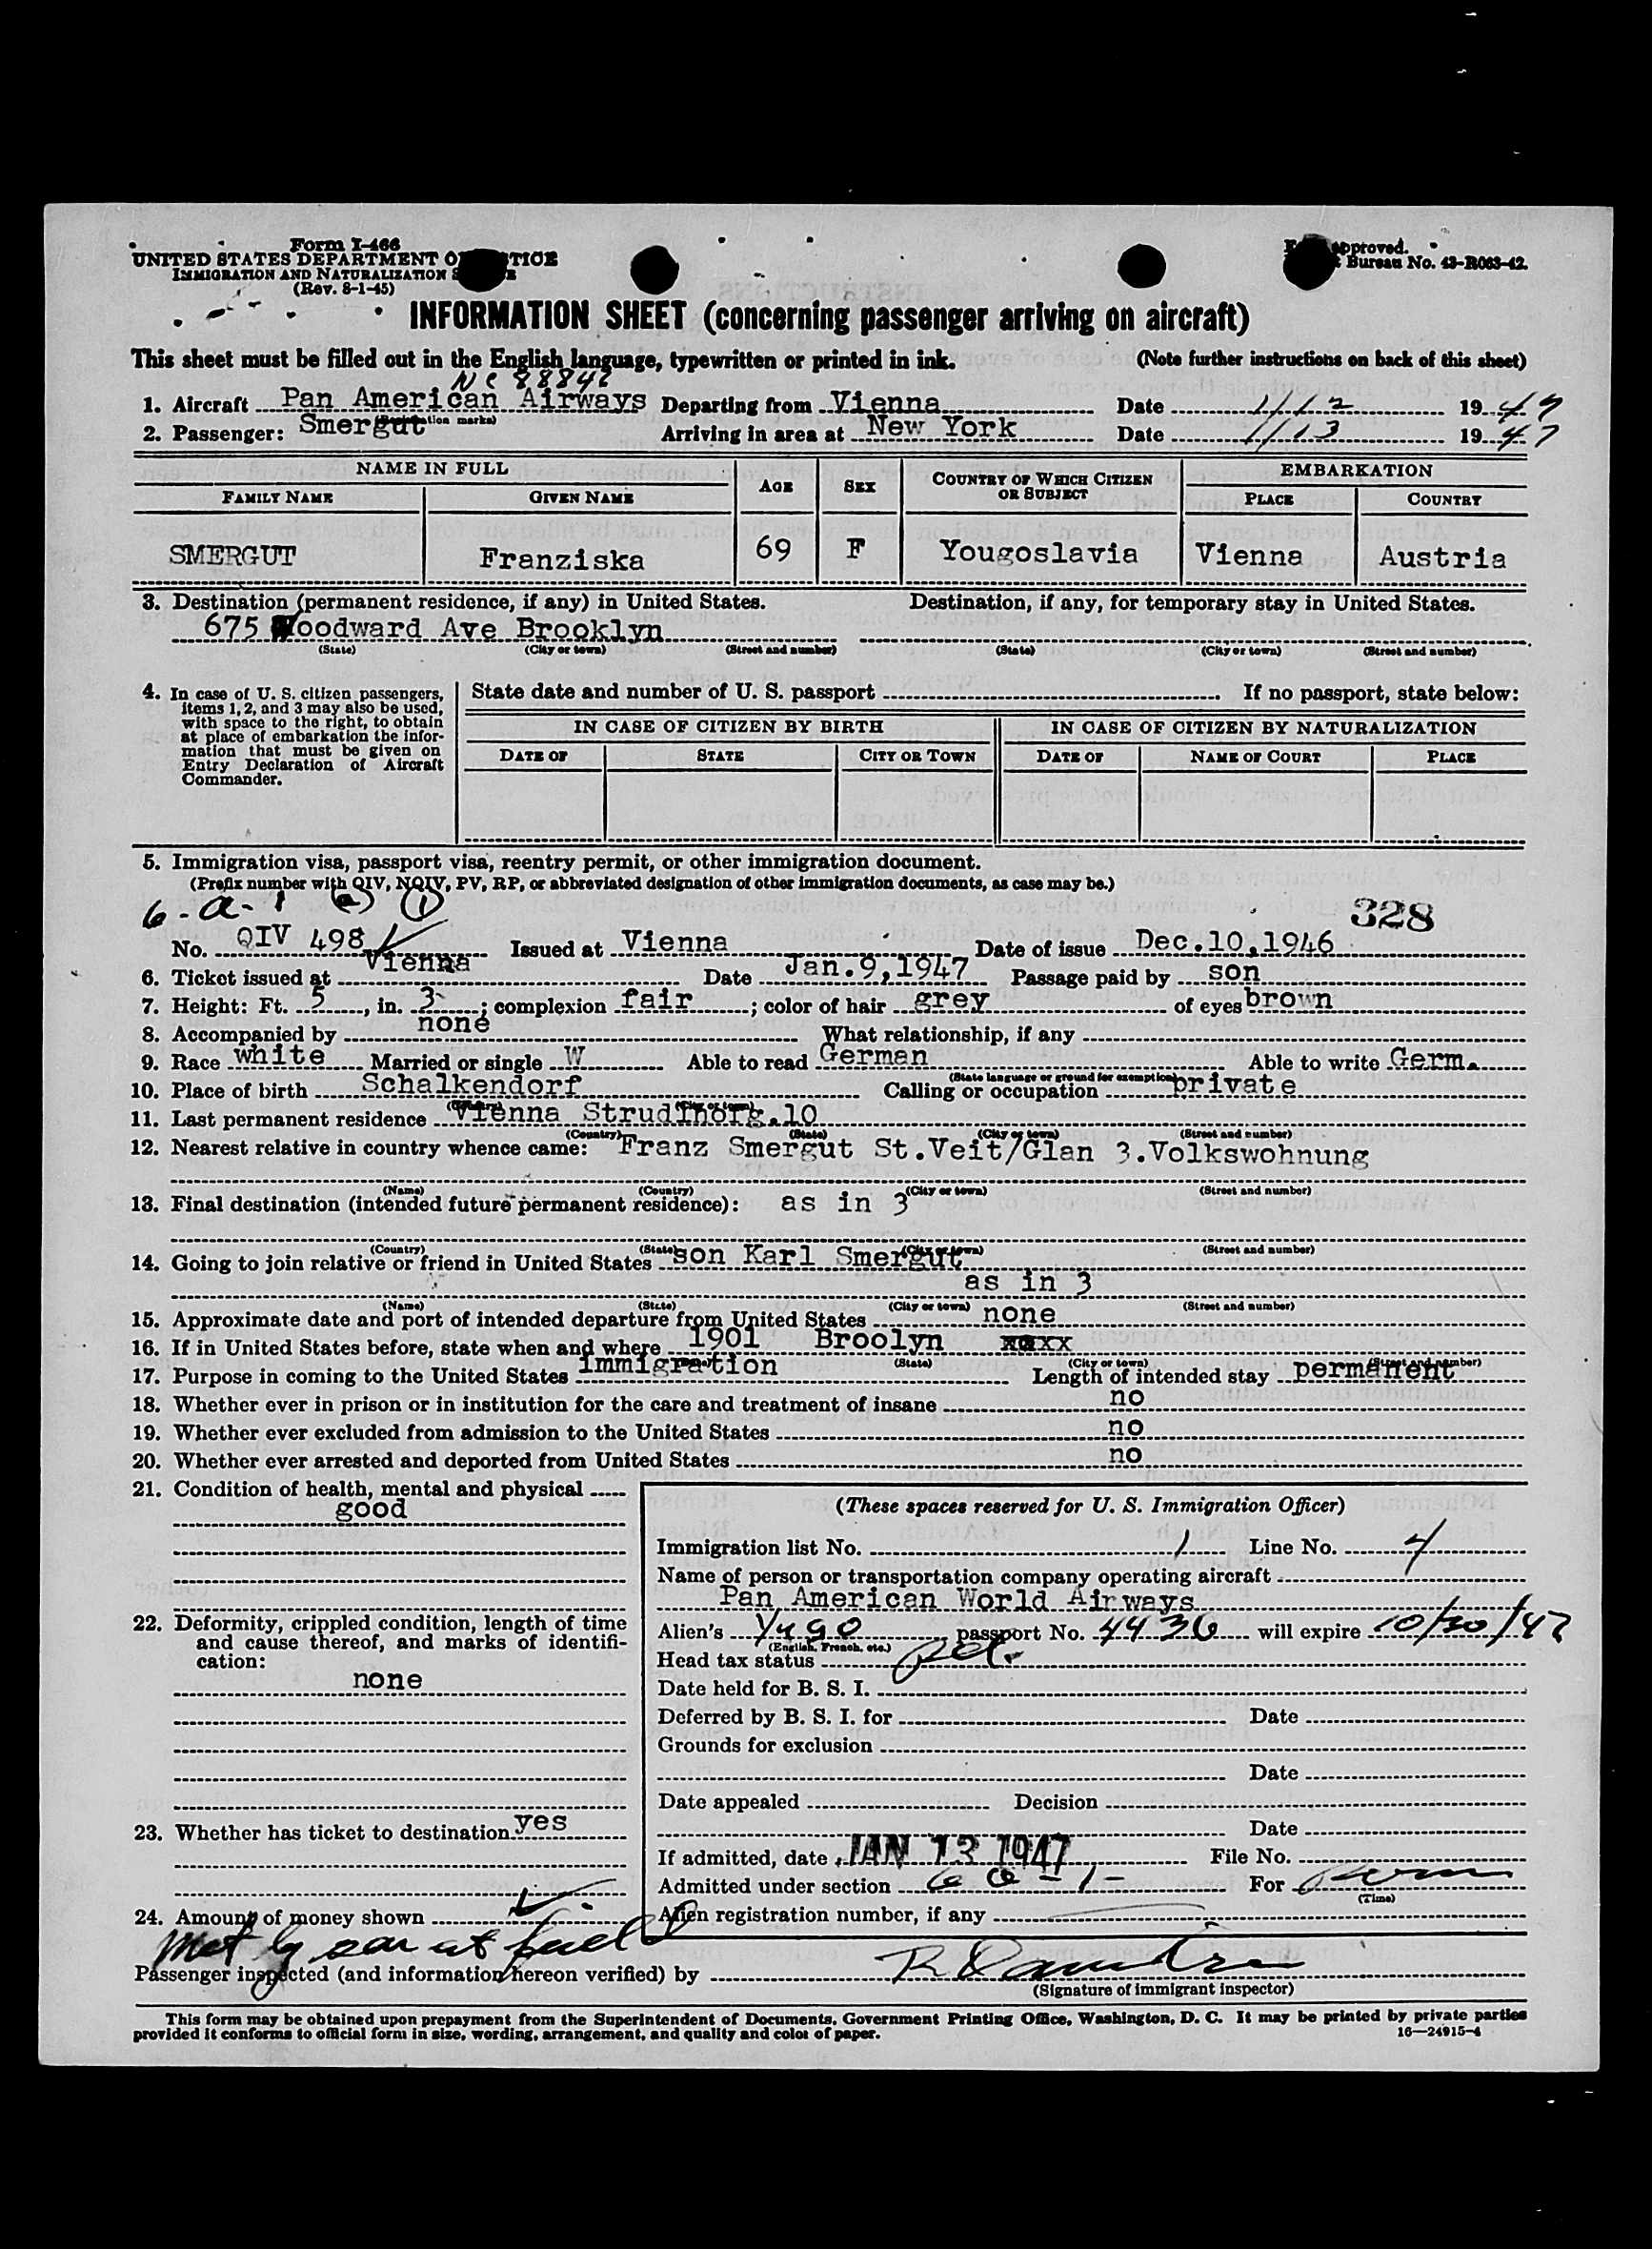 Form I-466
UNITED STATES DEPARTMENT OF JUSTICE
IMMIGRATION AND NATURALIZATION SERVICE
(Rev. 8-1-45)
approved.
Bureau No. 43-R063-42.
INFORMATION SHEET (concerning passenger arriving on aircraft)
This sheet must be filled out in the English language, typewritten or printed in ink. (Note further instructions on back of this sheet)
1. Aircraft Pan American Airways Departing from Vienna Date 1/12 1947
2. Passenger: Smergut Arriving in area at New York Date 1/13 1947
NAME IN FULL AGE SEX COUNTRY OF WHICH CITIZEN OR SUBJECT EMBARKATION
FAMILY NAME GIVEN NAME PLACE COUNTRY
SMERGUT Franziska 69 F Yougoslavia Vienna Austria
3. Destination (permanent residence, if any) in United States. Destination, if any, for temporary stay in United States.
675 Woodward Ave Brooklyn
(State) (City or town) (Street and number) (State) (City or town) (Street and number)
4. In case of U. S. citizen passengers, items 1, 2, and 3 may also be used, with space to the right, to obtain at place of embarkation the information that must be given on Entry Declaration of Aircraft Commander.
State date and number of U. S. passport If no passport, state below:
IN CASE OF CITIZEN BY BIRTH IN CASE OF CITIZEN BY NATURALIZATION
DATE OF STATE CITY OR TOWN DATE OF NAME OF COURT PLACE
5. Immigration visa, passport visa, reentry permit, or other immigration document.
(Prefix number with QIV, NQIV, PV, RP, or abbreviated designation of other immigration documents, as case may be.)
6-a-1 (a) (1) 328
No. QIV 498 Issued at Vienna Date of issue Dec.10,1946
6. Ticket issued at Vienna Date Jan.9,1947 Passage paid by son
7. Height: Ft. 5, in. 3; complexion fair; color of hair grey of eyes brown
8. Accompanied by none What relationship, if any
9. Race white Married or single W Able to read German Able to write Germ.
(State language or ground for exemption)
10. Place of birth Schalkendorf Calling or occupation private
(Country) (City or town)
11. Last permanent residence Vienna Strudlhofg.10
(Country) (State) (City or town) (Street and number)
12. Nearest relative in country whence came: Franz Smergut St.Veit/Glan 3.Volkswohnung
(Name) (Country) (City or town) (Street and number)
13. Final destination (intended future permanent residence): as in 3
(Country) (State) (City or town) (Street and number)
14. Going to join relative or friend in United States son Karl Smergut
as in 3
(Name) (State) (City or town) (Street and number)
15. Approximate date and port of intended departure from United States none
16. If in United States before, state when and where 1901 Broolyn
(State) (City or town) (Street and number)
17. Purpose in coming to the United States immigration Length of intended stay permanent
18. Whether ever in prison or in institution for the care and treatment of insane no
19. Whether ever excluded from admission to the United States no
20. Whether ever arrested and deported from United States no
21. Condition of health, mental and physical
good
22. Deformity, crippled condition, length of time and cause thereof, and marks of identification:
none
23. Whether has ticket to destination yes
24. Amount of money shown
(These spaces reserved for U. S. Immigration Officer)
Immigration list No. 1 Line No. 4
Name of person or transportation company operating aircraft
Pan American World Airways
Alien's Yugo passport No. 4436 will expire 10/30/47
(English, French, etc.)
Head tax status pd.
Date held for B. S. I.
Deferred by B. S. I. for Date
Grounds for exclusion
Date
Date appealed Decision
Date
If admitted, date JAN 13 1947 File No.
Admitted under section 6a-1- For Perm
(Time)
Alien registration number, if any
Met by son at field
Passenger inspected (and information hereon verified) by
(Signature of immigrant inspector)
This form may be obtained upon prepayment from the Superintendent of Documents, Government Printing Office, Washington, D. C. It may be printed by private parties
provided it conforms to official form in size, wording, arrangement, and quality and color of paper. 16—24915-4